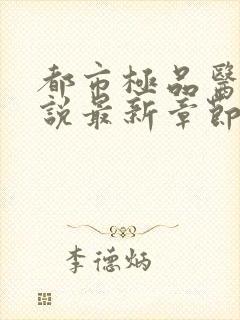 都市極品醫
說最新章節
李德炳